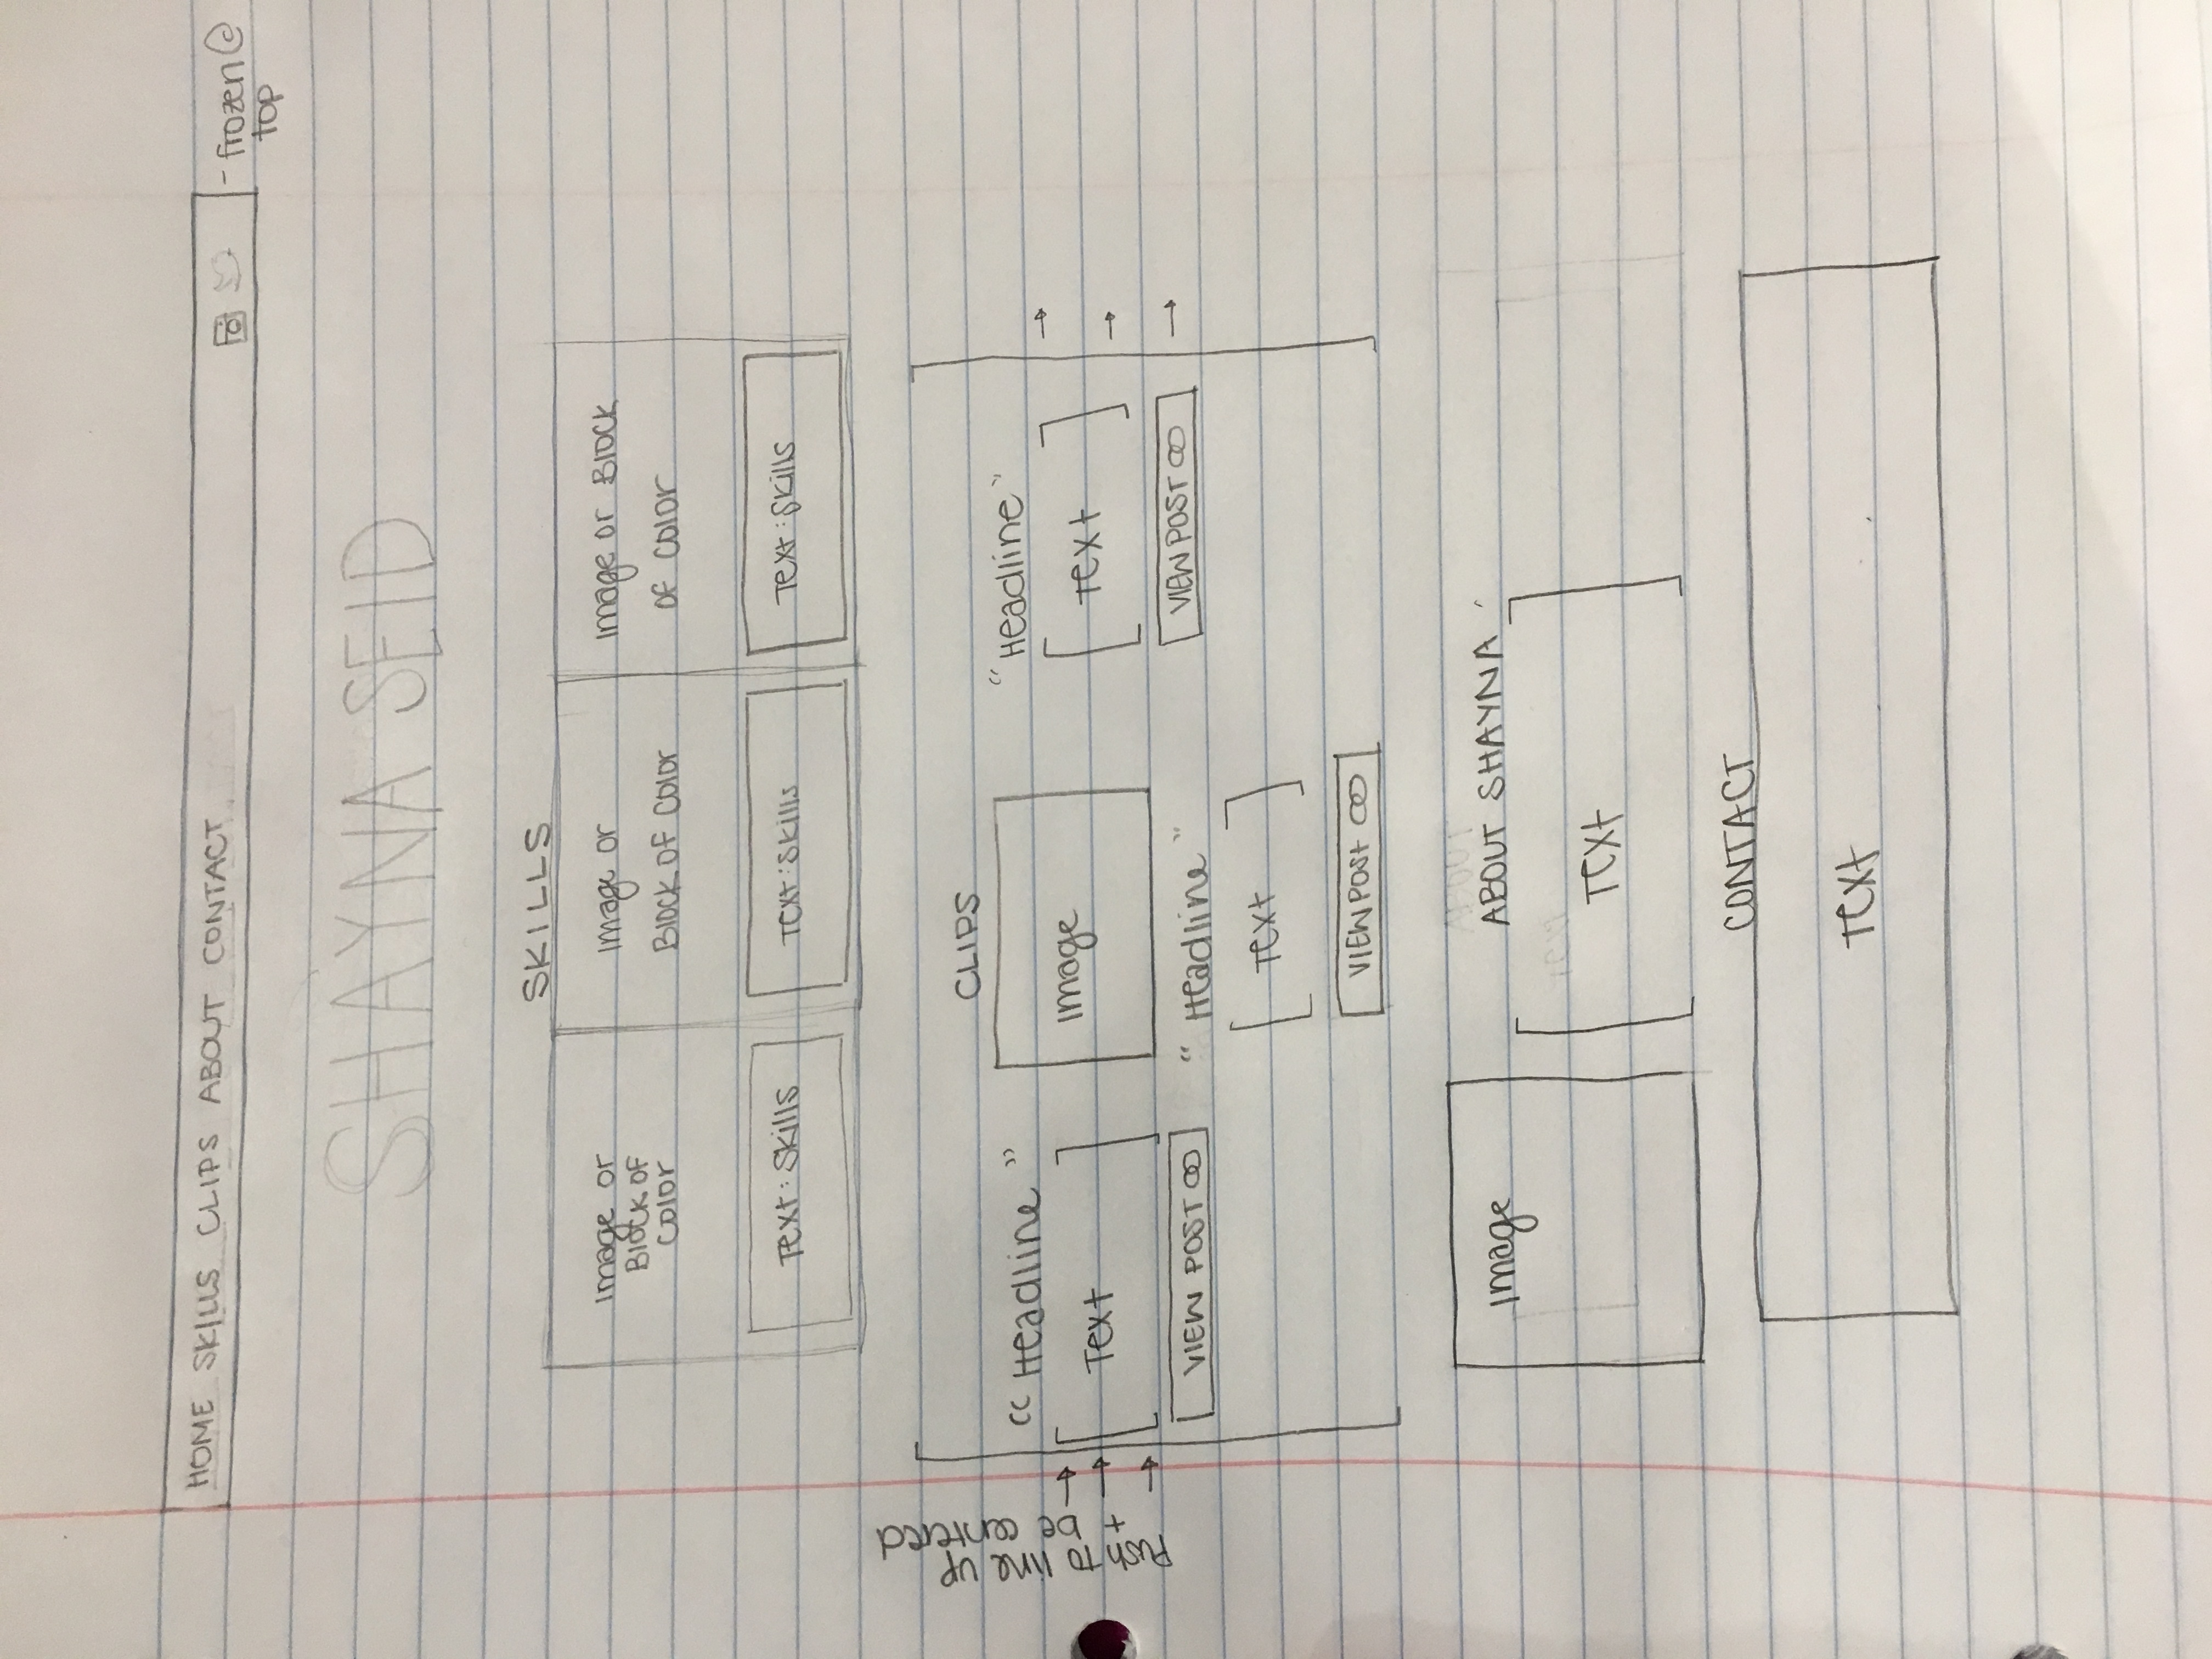 HOME SKILLS CLIPS ABOUT CONTACT
- frozen @
top
SHAYNA SEID
SKILLS
Image or
Block of
Color
Image or
Block of Color
Image or Block
of Color
Text: Skills
Text: Skills
Text: Skills
Push to line up
+ be centered
CLIPS
"Headline"
Text
VIEW POST
Image
"Headline"
Text
VIEW POST
"Headline"
Text
VIEW POST
Image
ABOUT
ABOUT SHAYNA
Text
Text
CONTACT
Text